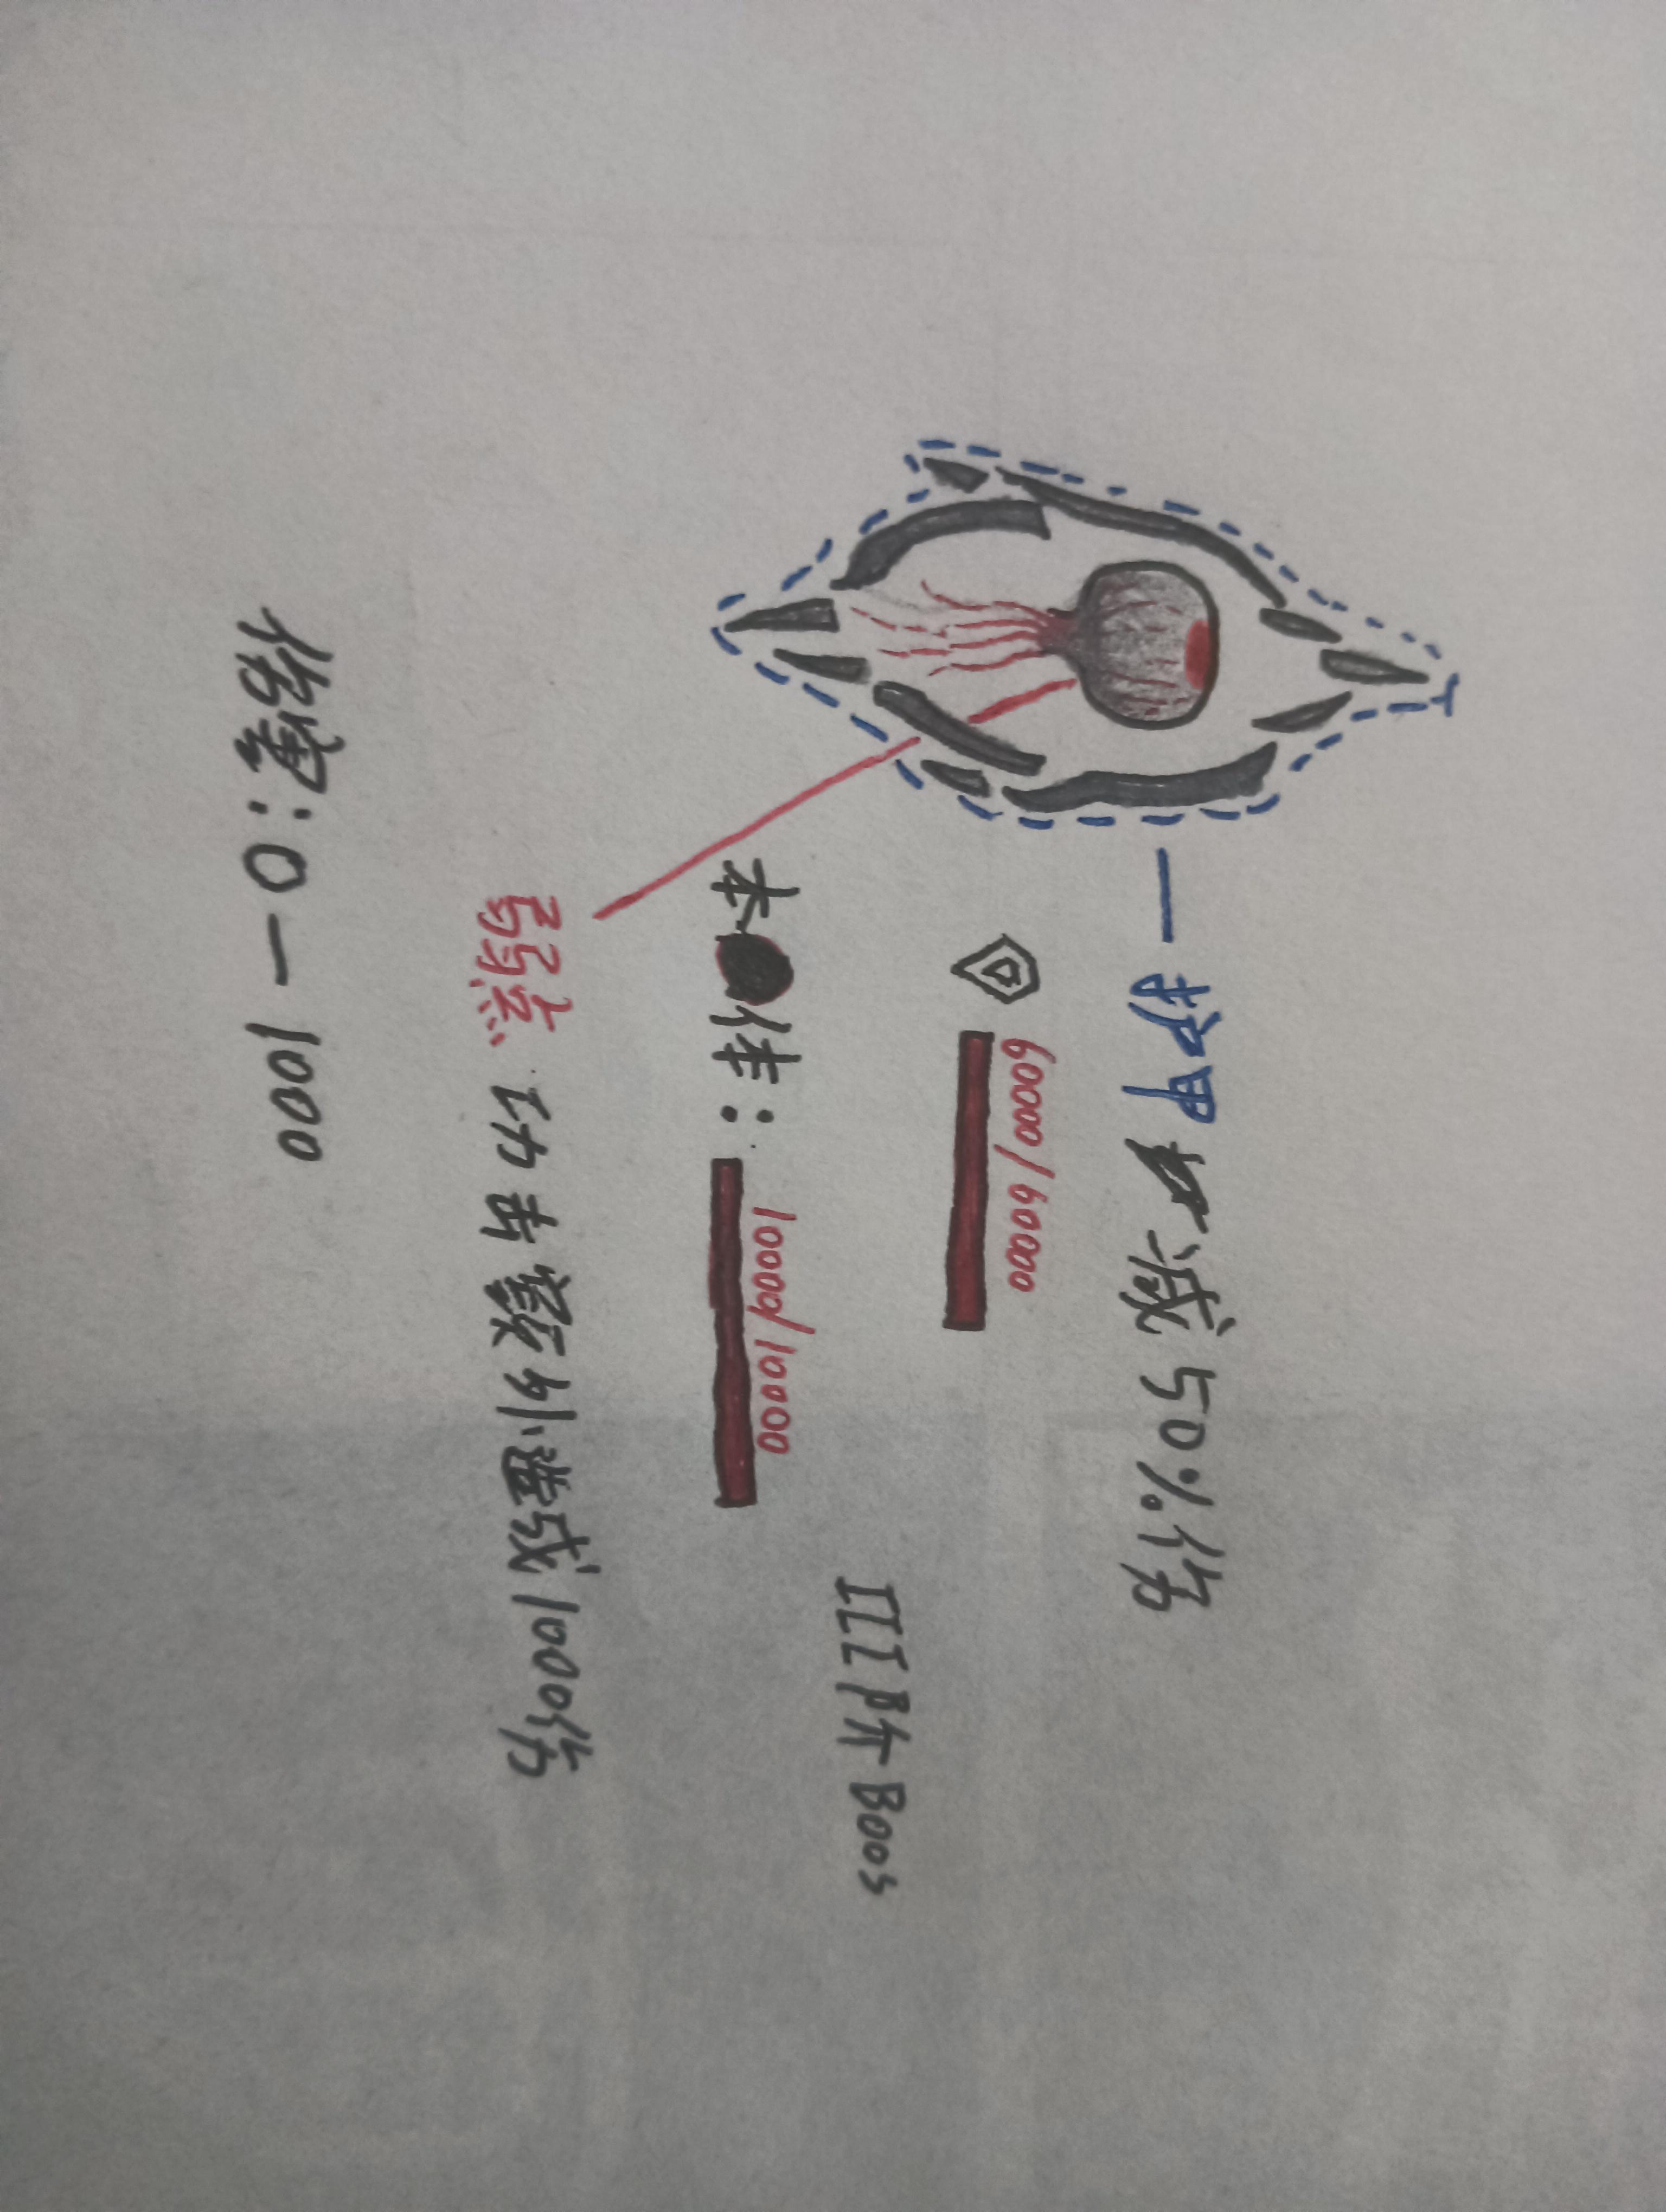 护甲 减50%伤
60000/60000
III阶Boos
本体: 10000/10000
弱点 攻击额外造成1000伤
伤害:0—1000